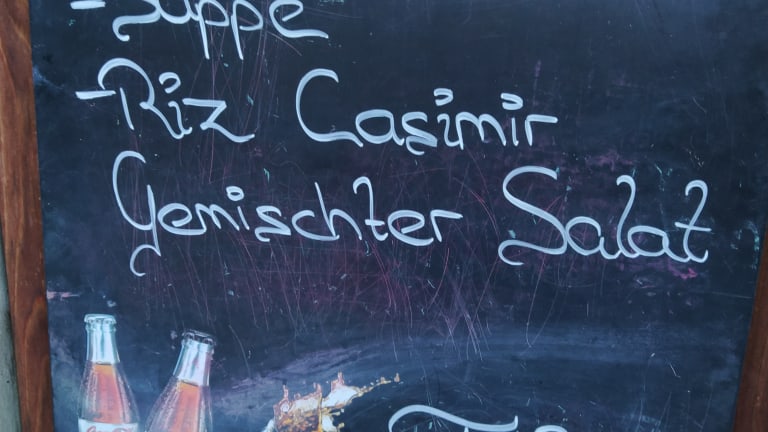 -Suppe
-Riz Casimir
Gemischter Salat